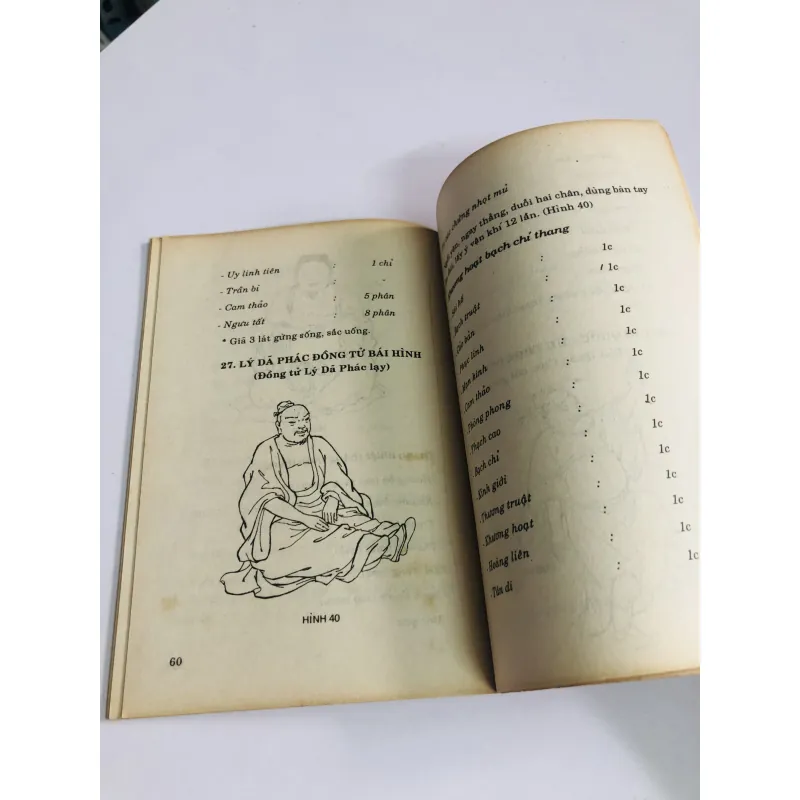 - Uy linh tiên : 1 chỉ
- Trần bì : "
- Cam thảo : 5 phân
- Ngưu tất : 8 phân
* Giã 3 lát gừng sống, sắc uống.
27. LÝ DÃ PHÁC ĐỒNG TỬ BÁI HÌNH
(Đồng tử Lý Dã Phác lạy)
HÌNH 40
60
chứng nhọt mủ
yên, ngay thẳng, duỗi hai chân, dùng bàn tay
lấy ý vận khí 12 lần. (Hình 40)
hoạt bạch chỉ thang
: 1c
Bạch truật : 1c
: 1c
Phục linh : 1c
kinh : 1c
- Cam thảo : 1c
- Phòng phong : 1c
- Thạch cao : 1c
- Bạch chỉ : 1c
- Kinh giới : 1c
- Thương truật : 1c
- Khương hoạt : 1c
- Hoàng liên : 1c
- Tân di :